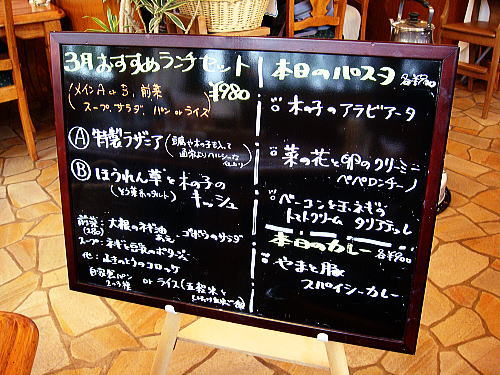 3月おすすめランチセット
¥980
(メイン A or B、前菜
スープ、サラダ、パン or ライス)
Ⓐ 特製ラザニア
Ⓑ ほうれん草と木の子の
キッシュ
前菜:大根のねぎ油
ごぼうのサラダ
スープ:ねぎと豆乳のポタージュ
他:
コロッケ
自家製パン
or ライス(五穀米と
本日のパスタ 各¥900
木の子のアラビアータ
菜の花と卵のクリーミー
ペペロンチーノ
ベーコンと玉ねぎの
トマトクリーム タリアテッレ
本日のカレー 各¥900
やまと豚
スパイシーカレー